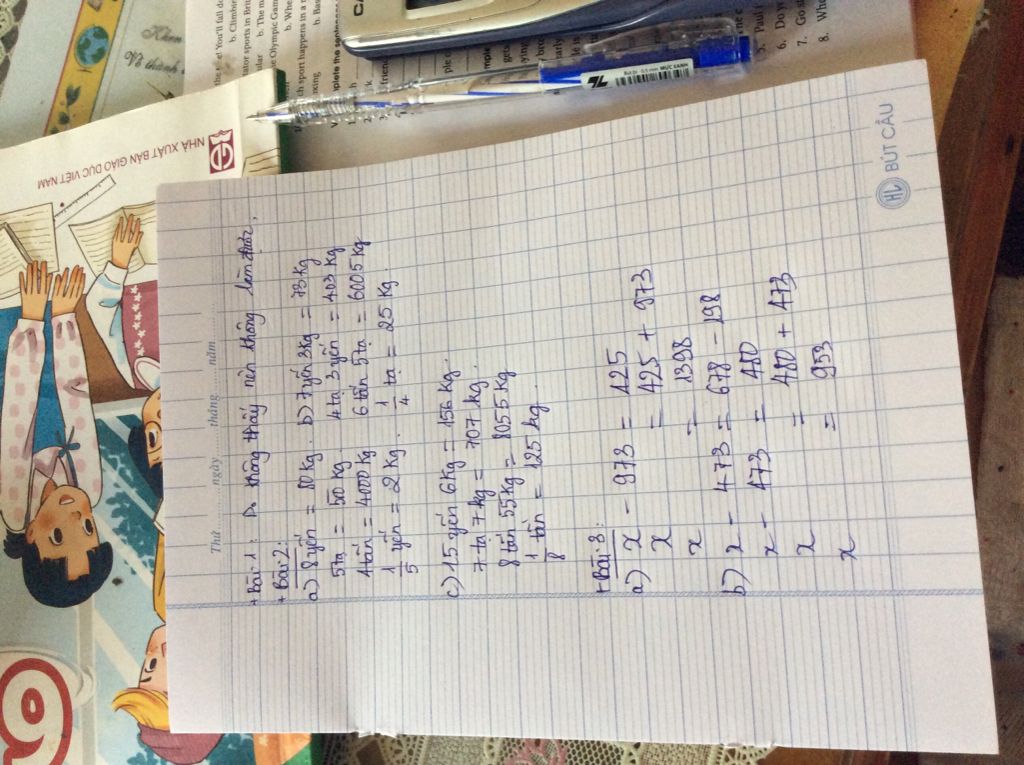 Thứ ........ ngày ........ tháng ........ năm ........
+ Bài 1: Do không thấy nên không làm được.
+ Bài 2:
a) 8 yến = 80 kg. b) 7 yến 3kg = 73 kg
5 tạ = 500 kg 4 tạ 3 yến = 403 kg
4 tấn = 4000 kg 6 tấn 5 tạ = 6005 kg
1/5 yến = 2 kg. 1/4 tạ = 25 kg.
c) 15 yến 6 kg = 156 kg.
7 tạ 7 kg = 707 kg.
8 tấn 55 kg = 8055 kg
1/8 tấn = 125 kg.
+ Bài 3:
a) x - 973 = 425
x = 425 + 973
x = 1398
b) x - 473 = 678 - 198
x - 473 = 480
x = 480 + 473
x = 953
HL BÚT CẦU
NHÀ XUẤT BẢN GIÁO DỤC VIỆT NAM
Bút bi 0.5 mm MỰC XANH
CA
e! You'll fall do
b. Climbin
tator sports in Brit
b. The m
e Olympic Gam
b. Whe
ch sport happens in a r
b. Bas
plete the sentences
friend
6. Do yo
7. Go st
8. Whe